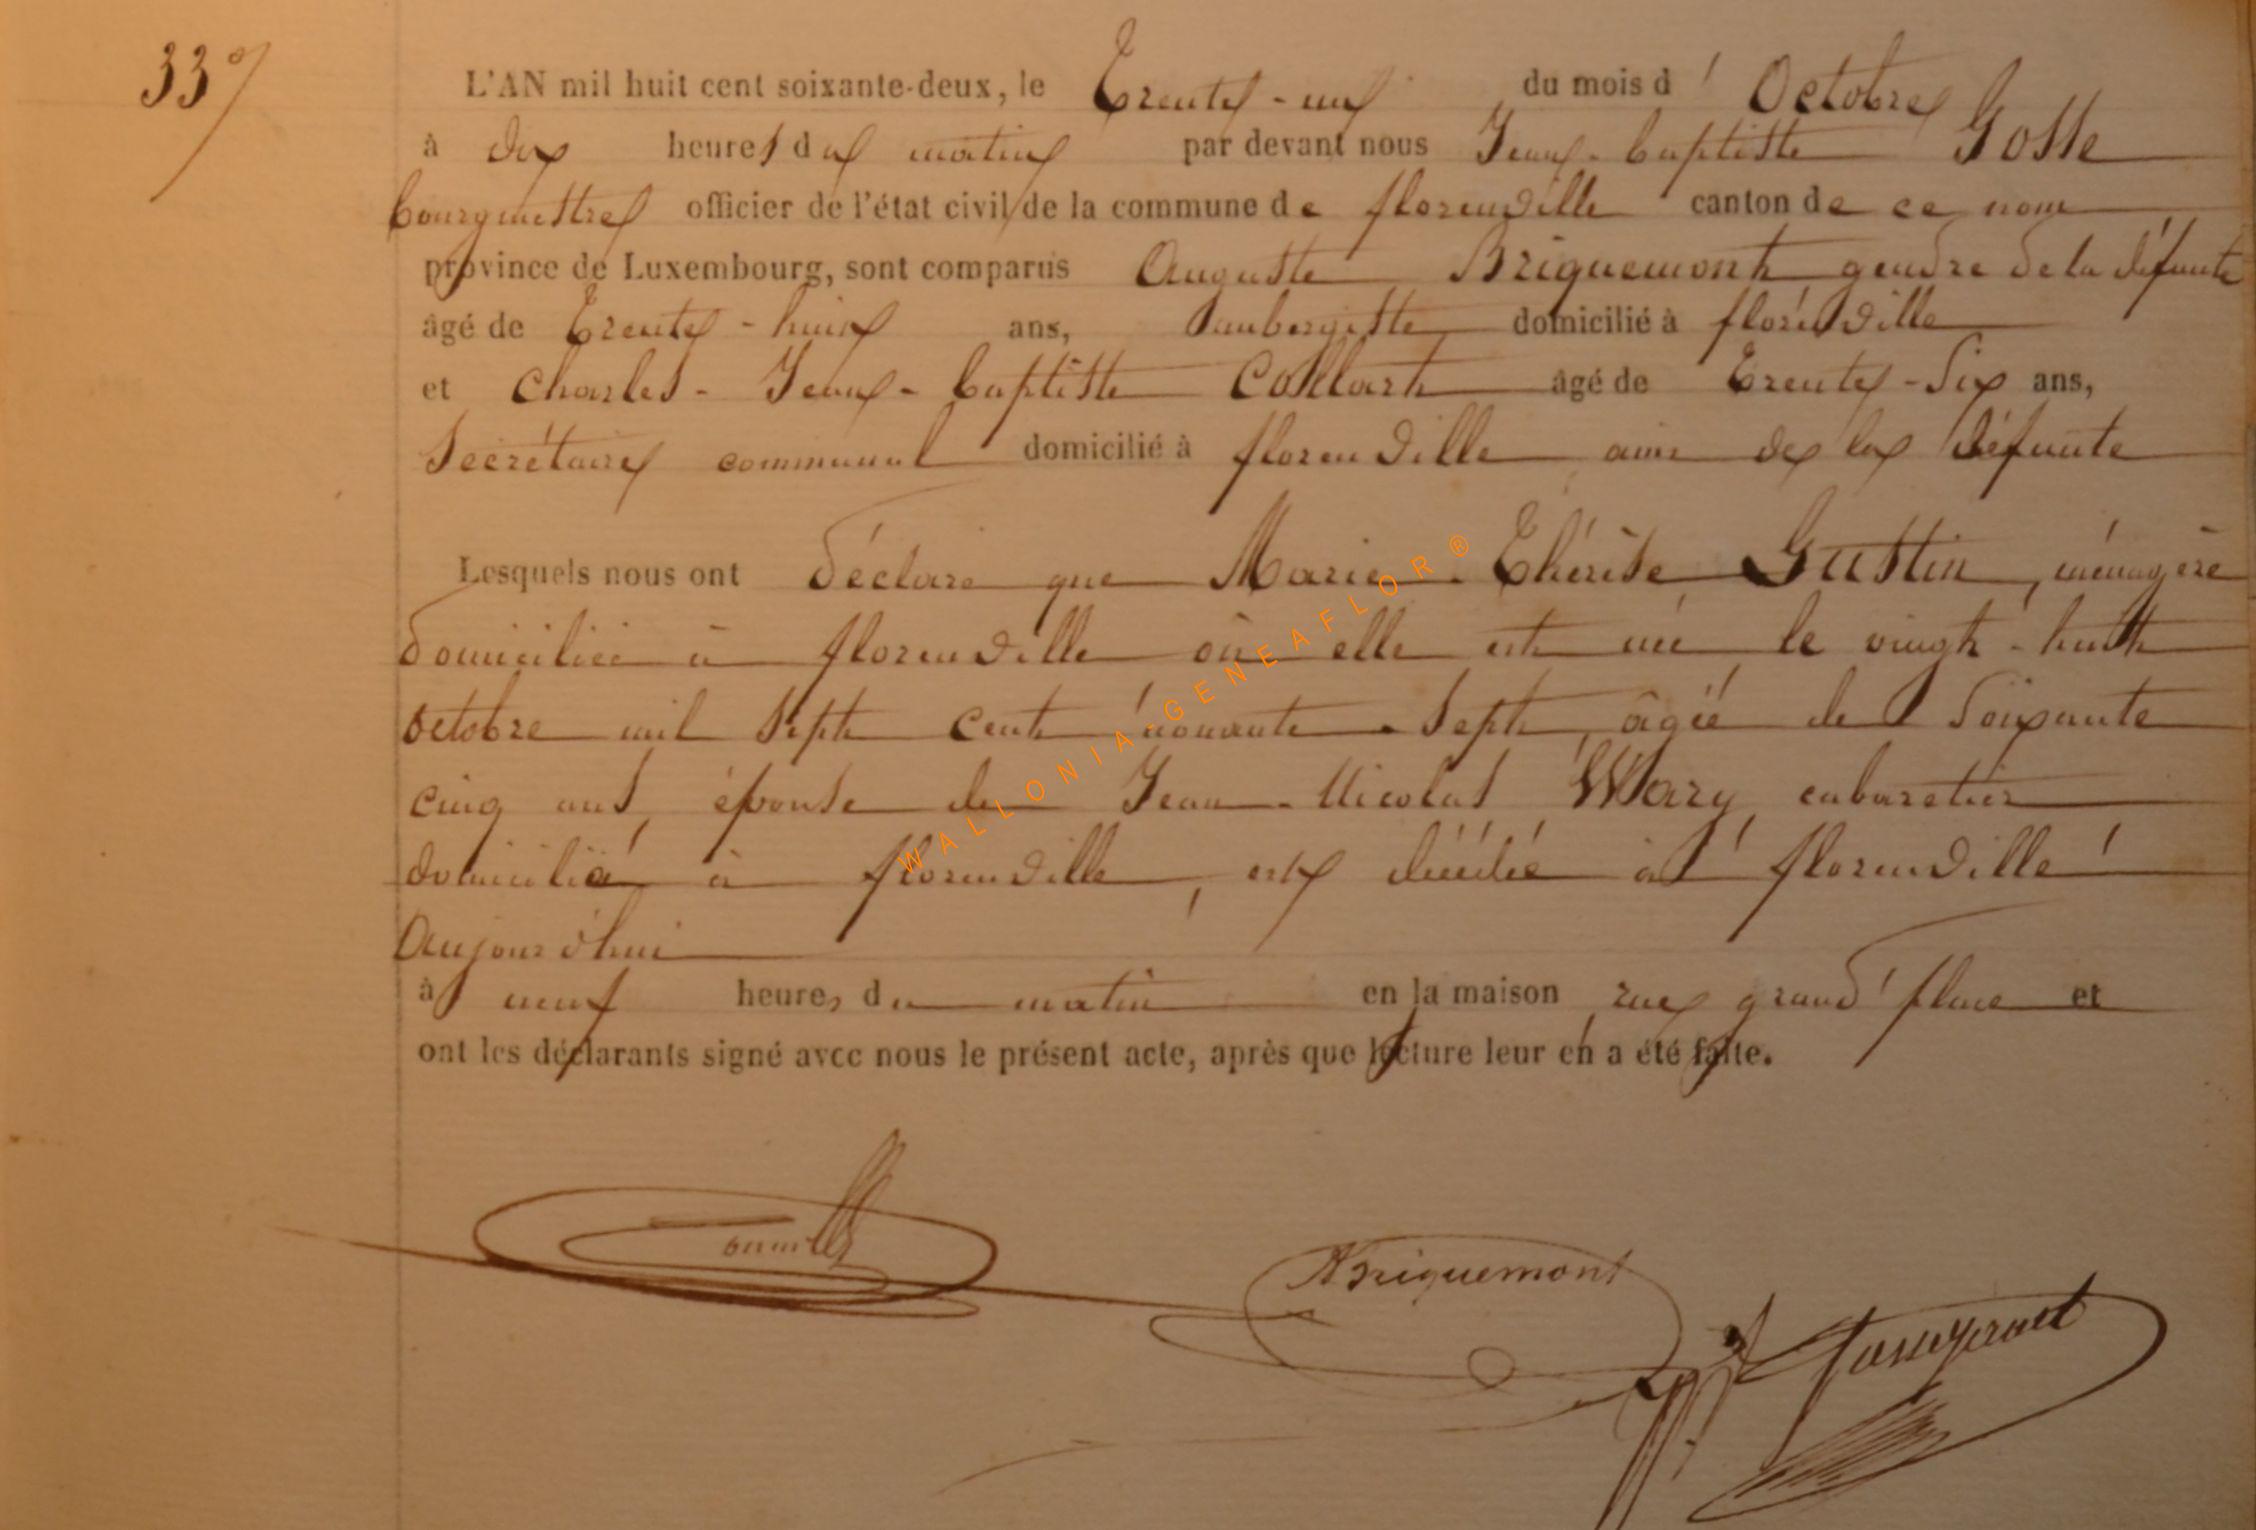 33°/
L'AN mil huit cent soixante-deux, le Trente-un du mois d'Octobre
à dix heures du matin par devant nous Jean-baptiste Gosse
bourgmestre officier de l'état civil de la commune de florenville canton de ce nom
province de Luxembourg, sont comparus Auguste Briquemont gendre de la défunte
âgé de Trente-huit ans, aubergiste domicilié à florenville
et Charles-Jean-baptiste Collart âgé de Trente-Six ans,
Secrétaire communal domicilié à florenville ami de la défunte
Lesquels nous ont déclaré que Marie-Thérèse Gustin, ménagère
domiciliée à florenville où elle est née le vingt-huit
octobre mil sept cent nonante-sept, âgée de Soixante
cinq ans, épouse de Jean-Nicolas Wary, cabaretier
domicilié à florenville, est décédée à florenville
Aujourd'hui
à neuf heures du matin en la maison rue grand'place et
ont les déclarants signé avec nous le présent acte, après que lecture leur en a été faite.
ABriquemont
WALLONIA-GENEAFLOR®